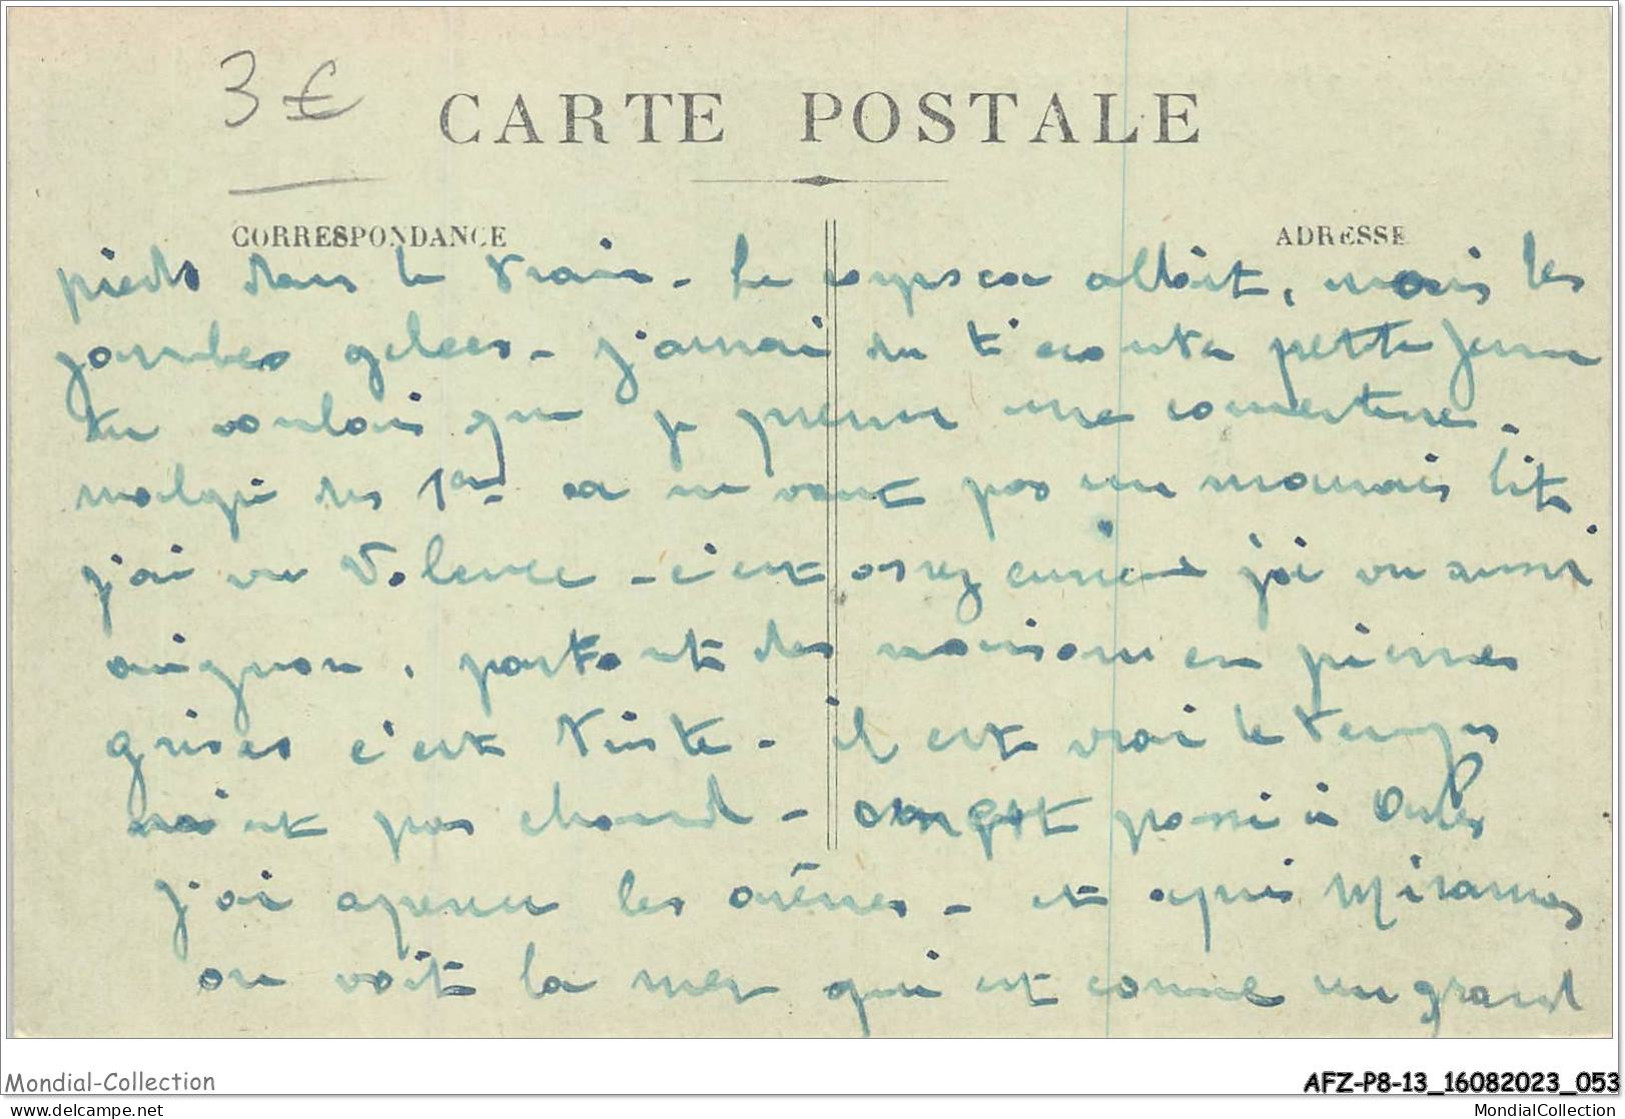 3 €
CARTE POSTALE
CORRESPONDANCE
ADRESSE
pieds dans le train - le corps ca allait, mais les
jambes gelees - j'aurai du t'ecouter petite femme
tu voulais que je prenne une couverture -
malgré les 1ere ca ne vaut pas un mauvais lit
j'ai vu Valence - c'est assez curieux j'ai vu aussi
avignon, partout des maisons en pierres
grises c'est triste - il est vrai le temps
n'est pas chaud - on est passé à Arles
j'ai aperçu les arênes - et apris Miramas
on voit la mer qui est comme un grand
Mondial-Collection
AFZ-P8-13_16082023_053
www.delcampe.net
MondialCollection